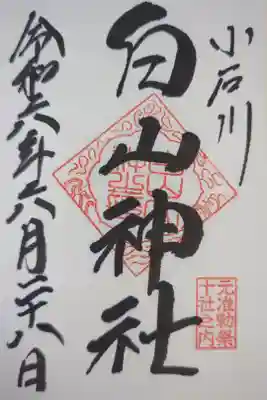 小石川
白山神社
元准勅祭
十社之内
令和六年六月二十八日